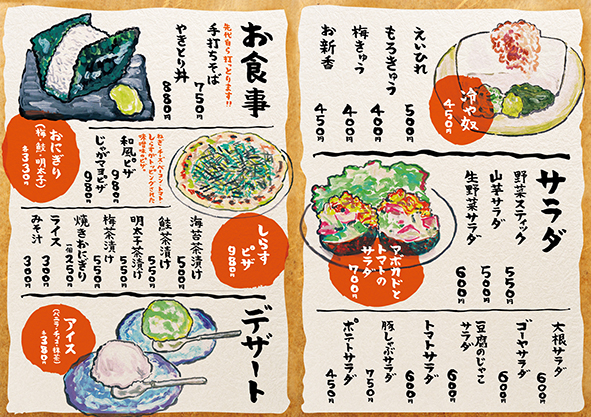 えいひれ
500円
もろきゅう
400円
梅きゅう
400円
お新香
450円
冷や奴
450円
サラダ
野菜スティック
550円
山芋サラダ
500円
生野菜サラダ
600円
アボカドと
トマトの
サラダ
700円
大根サラダ
600円
ゴーヤサラダ
600円
豆腐のじゃこ
サラダ
600円
トマトサラダ
600円
豚しゃぶサラダ
750円
ポテトサラダ
450円
お食事
先代自ら打っとります!!
手打ちそば
750円
やきとり丼
880円
おにぎり
(梅・鮭・明太子)
各330円
和風ピザ
980円
じゃがマヨピザ
980円
しらす
ピザ
980円
海苔茶漬け
500円
鮭茶漬け
550円
明太子茶漬け
550円
梅茶漬け
550円
焼きおにぎり
一個250円
ライス
300円
みそ汁
300円
デザート
アイス
各380円